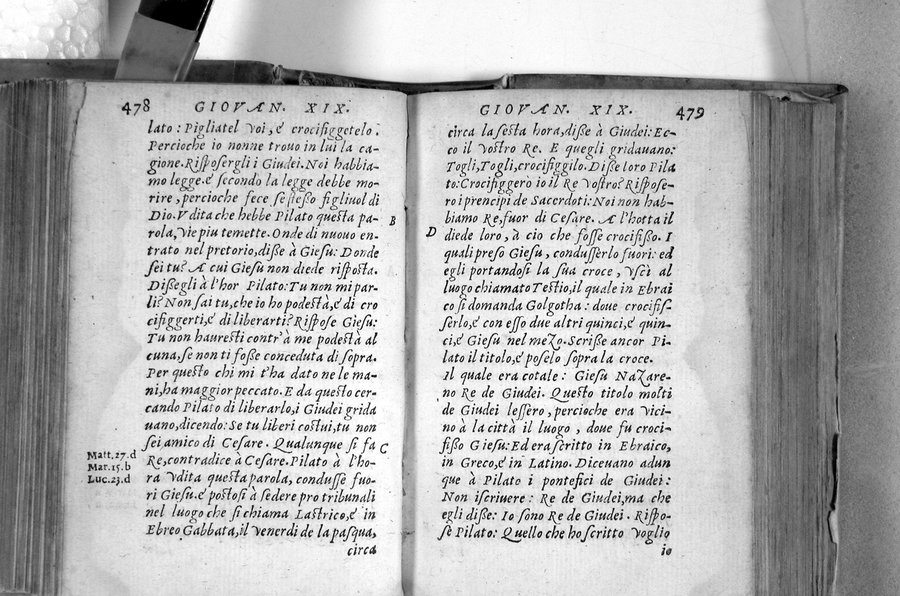 478 GIOVAN. XIX.
lato: Pigliatel voi, e crocifiggetelo.
Percioche io nonne trovo in lui la ca-
gione. Risposergli i Giudei. Noi habbia-
mo legge. e secondo la legge debbe mo-
rire, percioche fece se stesso figliuol di
Dio. Vdita che hebbe Pilato questa pa-
rola, vie piu temette. Onde di nuouo en-
trato nel pretorio, disse à Giesu: Donde
sei tu? A cui Giesu non diede risposta.
Dissegli à l'hor Pilato: Tu non mi par-
li? Non sai tu, che io ho podestà, e di cro
cifiggerti, e di liberarti? Rispose Giesu:
Tu non hauresti contr'à me podestà al
cuna, se non ti fosse conceduta di sopra.
Per questo chi mi t'ha dato ne le ma-
ni, ha maggior peccato. E da questo cer-
cando Pilato di liberarlo, i Giudei grida
uano, dicendo: Se tu liberi costui, tu non
sei amico di Cesare. Qualunque si fa
Re, contradice à Cesare. Pilato à l'ho-
ra vdita questa parola, condusse fuo-
ri Giesu. e postosi à sedere pro tribunali
nel luogo che si chiama Lastrico, e in
Ebreo Gabbata, il venerdi de la pasqua,
circa
B
C
Matt. 27.d
Mar. 15.b
Luc. 23.d
GIOVAN. XIX. 479
circa la sesta hora, disse à Giudei: Ec-
co il vostro Re. E quegli gridauano:
Togli, Togli, crocifiggilo. Disse loro Pila
to: Crocifiggerò io il Re vostro? Rispose-
ro i prencipi de Sacerdoti: Noi non hab-
biamo Re, fuor di Cesare. A l'hotta il
diede loro, à cio che fosse crocifisso. I
quali preso Giesu, condusserlo fuori: ed
egli portandosi la sua croce, vscì al
luogo chiamato Testio, il quale in Ebrai
co si domanda Golgotha: doue crocifis-
serlo, e con esso due altri quinci, e quin-
ci, e Giesu nel mezo. Scrisse ancor Pi-
lato il titolo, e poselo sopra la croce.
Il quale era cotale: Giesu Nazare-
no Re de Giudei. Questo titolo molti
de Giudei lessero, percioche era vici-
no à la città il luogo, doue fu croci-
fisso Giesu: Ed era scritto in Ebraico,
in Greco, e in Latino. Diceuano adun
que à Pilato i pontefici de Giudei:
Non iscriuere: Re de Giudei, ma che
egli disse: Io sono Re de Giudei. Rispo-
se Pilato: Quello che ho scritto voglio
io
D